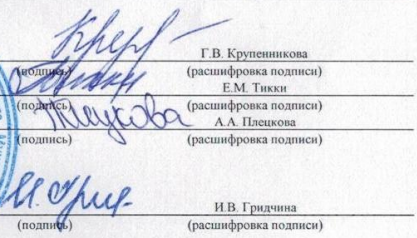 Г.В. Крупенникова
(подпись) (расшифровка подписи)
Е.М. Тикки
(подпись) (расшифровка подписи)
А.А. Плецкова
(подпись) (расшифровка подписи)
И.В. Гридчина
(подпись) (расшифровка подписи)